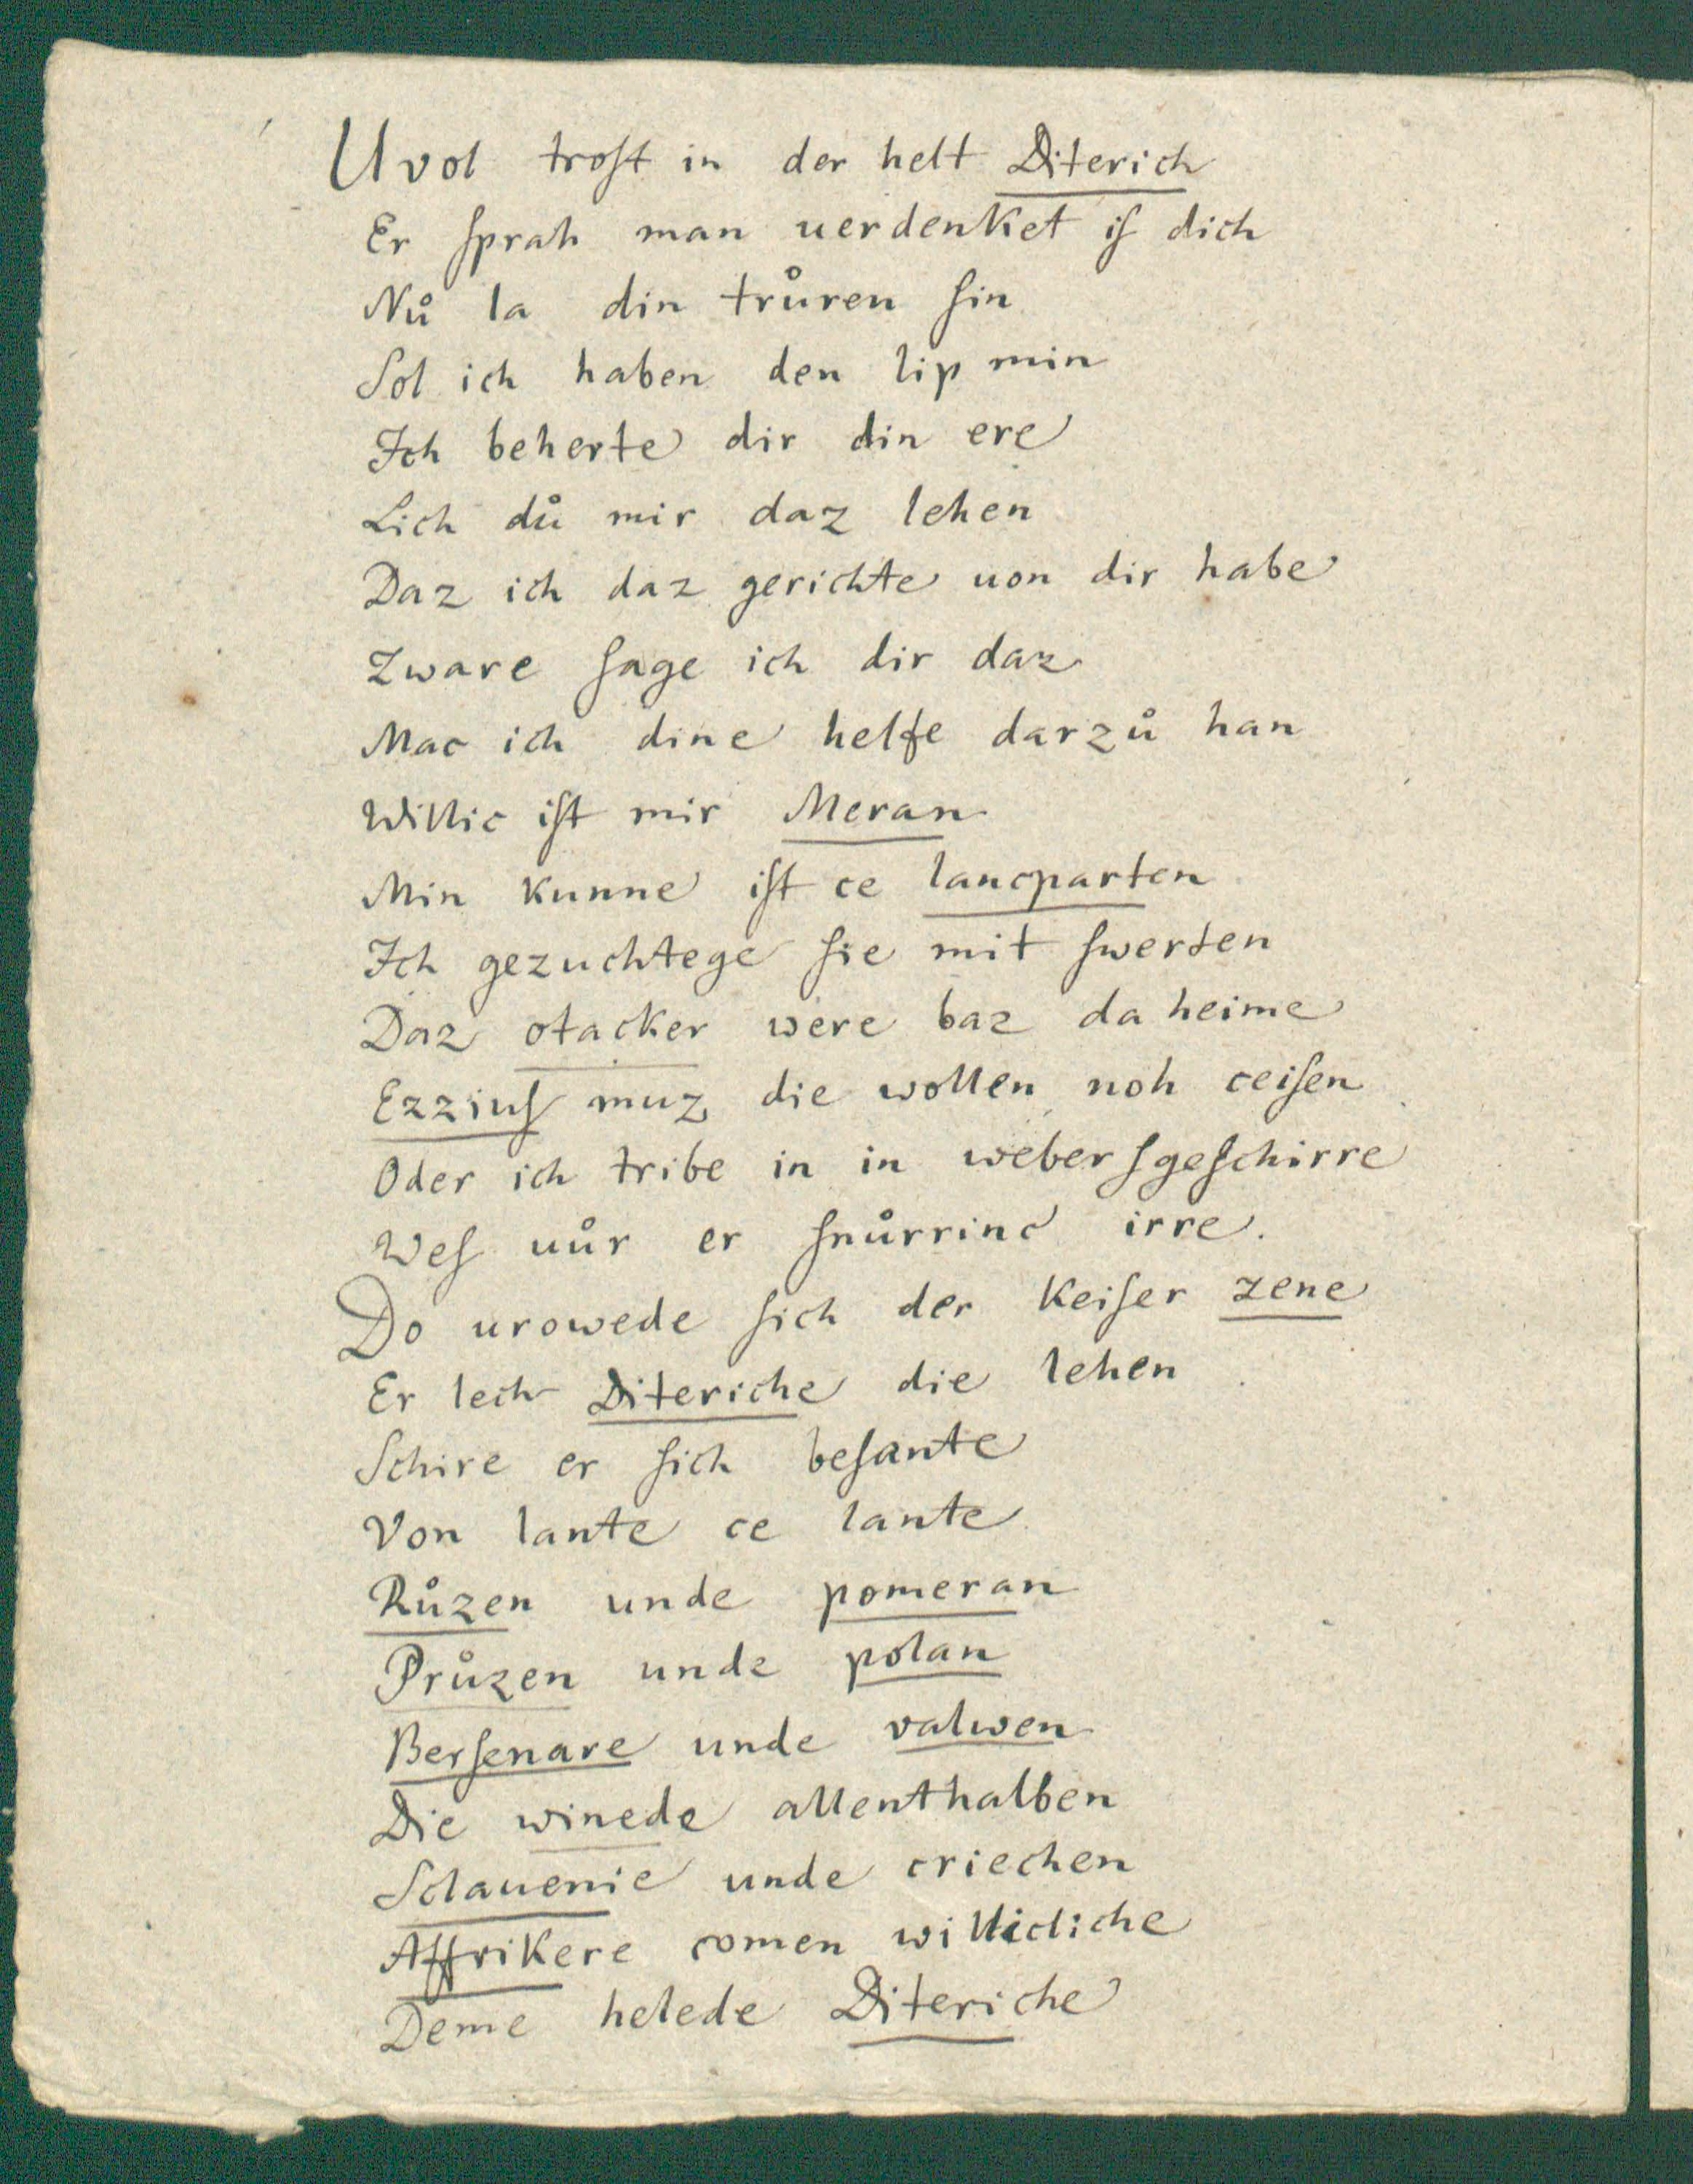 Uvol troſt in der helt Diterich
Er ſprah man uerdenket iſ dich
Nů la din trůren ſin
Sol ich haben den lip min
Ich beherte dir din ere
Lich dů mir daz lehen
Daz ich daz gerichte uon dir habe
Zware ſage ich dir daz
Mac ich dine helfe darzů han
Willic iſt mir Meran
Min kunne iſt ce lancparten
Ich gezuchtege ſie mit ſwerten
Daz otacker were baz da heime
Ezziuſ muz die wollen noh ceiſen
Oder ich tribe in in weberſgeſchirre
Weſ uůr er ſnůrrinc irre.
Do urowede ſich der keiſer zene
Er lech Diteriche die lehen
Schire er ſich beſante
Von lante ce lante
Růzen unde pomeran
Průzen unde polan
Berſenare unde valwen
Die winede allenthalben
Sclauenie unde criechen
Affrikere comen willicliche
Deme helede Diteriche